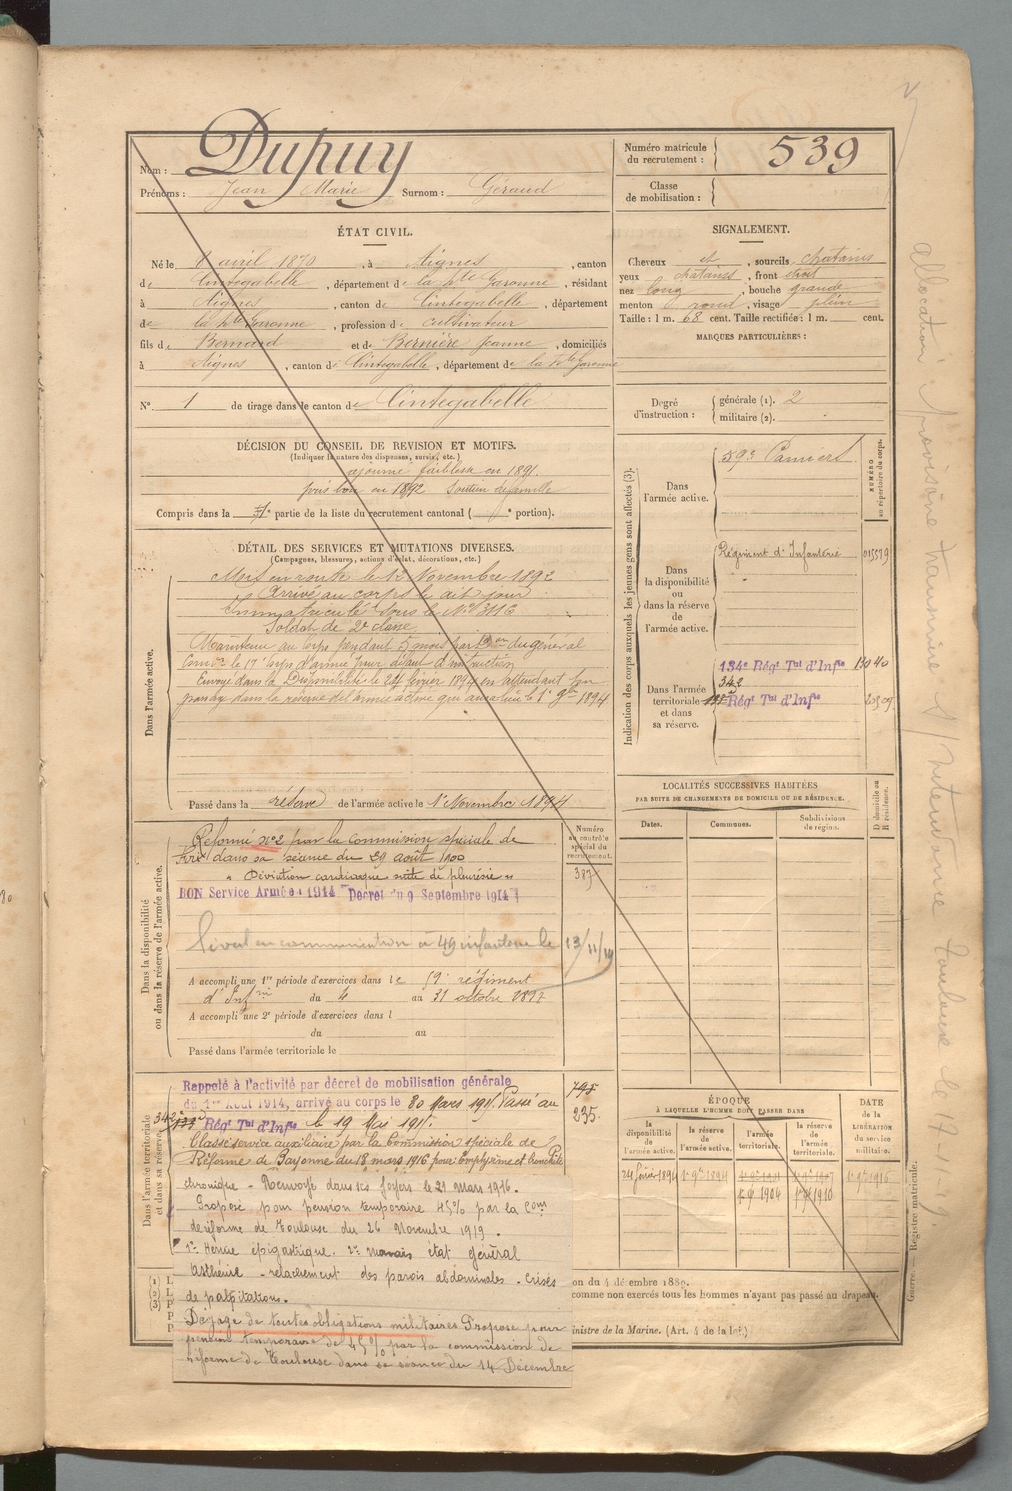 Nom : Dupuy
Prénoms : Jean Marie Surnom : Géraud
Numéro matricule du recrutement : 539
Classe de mobilisation :
ÉTAT CIVIL.
Né le 1 avril 1870, à Aignes, canton
de Cintegabelle, département de la Hte Garonne, résidant
à Aignes, canton de Cintegabelle, département
de la Hte Garonne, profession de cultivateur
fils de Bernard et de Bernière Jeanne, domiciliés
à Aignes, canton de Cintegabelle, département de la Hte Garonne
N° 1 de tirage dans le canton de Cintegabelle
SIGNALEMENT.
Cheveux et, sourcils chatains
yeux chatains, front étroit
nez long, bouche grande
menton rond, visage plein
Taille : 1 m. 68 cent. Taille rectifiée : 1 m. cent.
MARQUES PARTICULIÈRES :
Degré d'instruction : générale (1). 2
militaire (2).
DÉCISION DU CONSEIL DE REVISION ET MOTIFS.
(Indiquer la nature des dispenses, sursis, etc.)
ajourné faiblesse en 1891
puis bon en 1892 Soutien de famille
Compris dans la partie de la liste du recrutement cantonal ( e portion).
DÉTAIL DES SERVICES ET MUTATIONS DIVERSES.
(Campagnes, blessures, actions d'éclat, décorations, etc.)
Dans l'armée active.
Mis en route le 12 Novembre 1892
Arrivé au corps le dit jour
Immatriculé sous le N° 3116
Soldat de 2e classe
Maintenu au corps pendant 5 mois par on du général
Comt le 17e Corps d'armée pour défaut d'instruction
Envoyé dans la Disponibilité le 24 février 1894 en attendant son
passage dans la réserve de l'armée active qui aura lieu le 1er 9bre 1894
Passé dans la réserve de l'armée active le 1er Novembre 1894
Indication des corps auxquels les jeunes gens sont affectés (3).
NUMÉRO au répertoire du corps.
Dans l'armée active.
59e Pamiers
Dans la disponibilité ou dans la réserve de l'armée active.
Régiment d'Infanterie 015579
Dans l'armée territoriale et dans sa réserve.
134e Régt Tal d'Infie 13040
342
Régt Tal d'Infie
LOCALITÉS SUCCESSIVES HABITÉES
PAR SUITE DE CHANGEMENTS DE DOMICILE OU DE RÉSIDENCE.
D domicile ou R résidence.
Dates. Communes. Subdivisions du région.
Dans la disponibilité ou dans la réserve de l'armée active.
Réformé n°2 par la commission spéciale de
dans sa séance du 29 août 1900
" Déviation cardiaque suite de pleurésie "
BON Service Armée 1914 Décret du 9 Septembre 1914
Numéro au contrôle spécial du recrutement.
387
Livret en communication à 49 infanterie le 13/11/19
A accompli une 1re période d'exercices dans le 59e régiment
d'Infrie du 4 au 31 octobre 1897
A accompli une 2e période d'exercices dans l
du au
Passé dans l'armée territoriale le
Dans l'armée territoriale et dans sa réserve
Rappelé à l'activité par décret de mobilisation générale
du 1er Août 1914, arrivé au corps le 30 Mars 1915 Passé au
342 Régt Tal d'Infie le 19 Mai 1915.
Classé service auxiliaire par la Commission spéciale de
Réforme de Bayonne du 18 mars 1916 pour Emphysème et bronchite
chronique - Renvoyé dans ses foyers le 21 mars 1916.
Proposé pour pension temporaire 45% par la Com
de réforme de Toulouse du 26 Novembre 1919.
1° Hernie épigastrique. 2° mauvais état général
asthénie - relachement des parois abdominales. Crises
de palpitations.
Dégagé de toutes obligations militaires Proposé pour
pension temporaire de 45% par la commission de
réforme de Toulouse dans sa séance du 14 Décembre
795
235
ÉPOQUE
À LAQUELLE L'HOMME DOIT PASSER DANS
la disponibilité de l'armée active.
la réserve de l'armée active.
l'armée territoriale.
la réserve de l'armée territoriale.
DATE de la LIBÉRATION du service militaire.
24 février 1894 1er 9bre 1894 1er 9bre 1907 1er 9bre 1916
1er 9bre 1904 1er 9bre 1910
(1)
(2)
(3)
on du 4 décembre 1889.
comme non exercés tous les hommes n'ayant pas passé au drapeau.
inistre de la Marine. (Art. 4 de la loi)
Guerre. — Registre matricule.
allocation provisoire transmise s/Intendance Toulouse le 17-11-19.